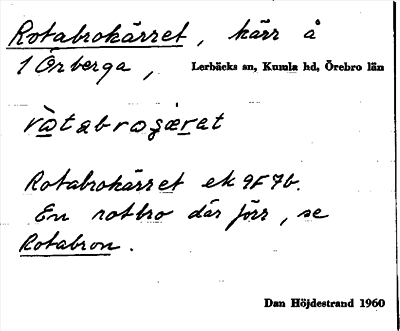 Rotabrokärret, kärr å
1 Örberga, Lerbäcks sn, Kumla hd, Örebro län
Rotabrokärret ek 9F7b.
En rotbro där förr, se
Rotabron.
Dan Höjdestrand 1960